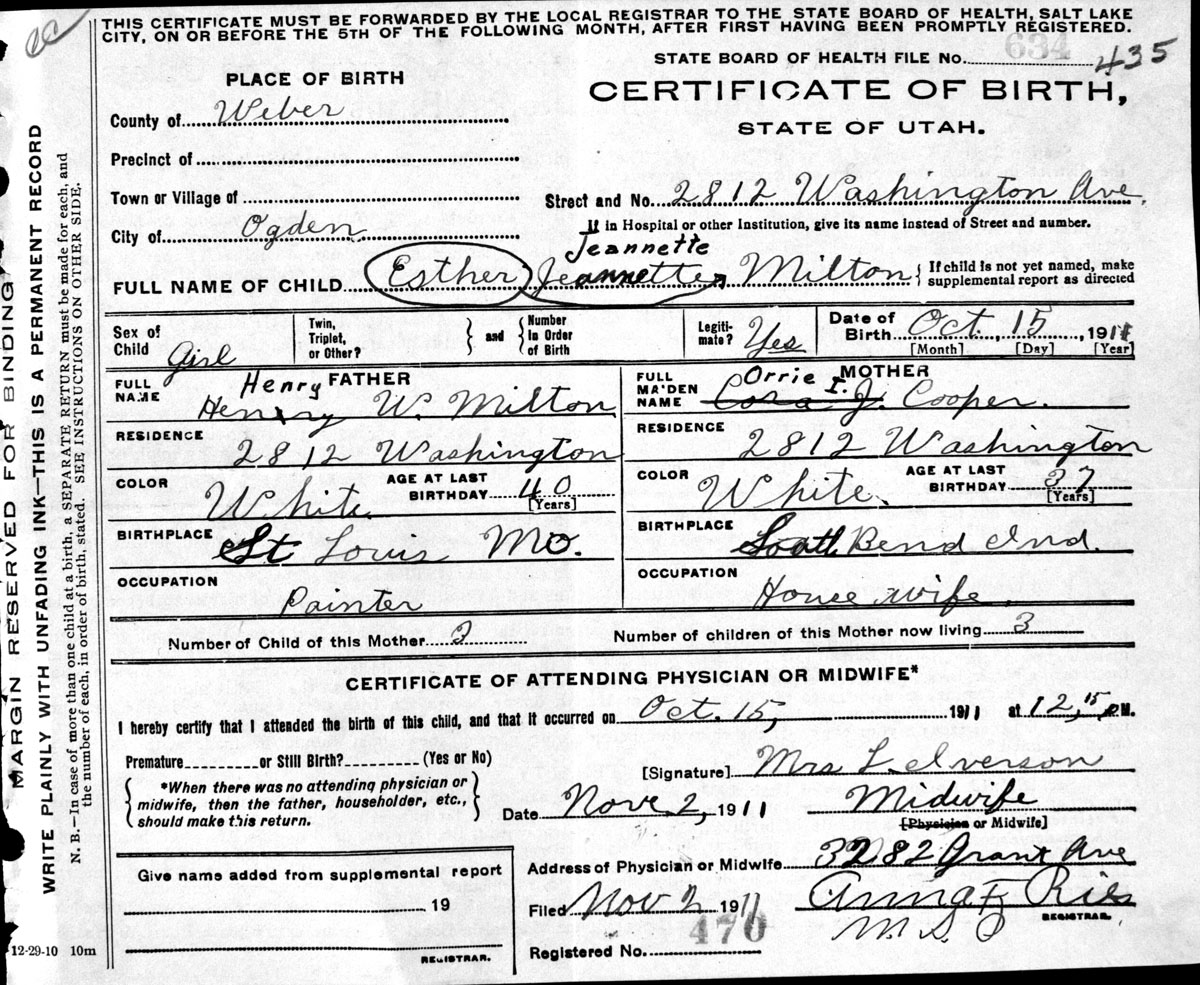 THIS CERTIFICATE MUST BE FORWARDED BY THE LOCAL REGISTRAR TO THE STATE BOARD OF HEALTH, SALT LAKE
CITY, ON OR BEFORE THE 5TH OF THE FOLLOWING MONTH, AFTER FIRST HAVING BEEN PROMPTLY REGISTERED.
634
STATE BOARD OF HEALTH FILE No. 435
PLACE OF BIRTH
CERTIFICATE OF BIRTH,
STATE OF UTAH.
County of Weber
Precinct of
Town or Village of
Street and No. 2812 Washington Ave.
If in Hospital or other Institution, give its name instead of Street and number.
City of Ogden
Jeannette
FULL NAME OF CHILD Esther Jeannette Milton
If child is not yet named, make
supplemental report as directed
Sex of
Child Girl
Twin,
Triplet,
or Other?
and
Number
in Order
of Birth
Legiti-
mate? Yes
Date of
Birth Oct. 15, 1911
[Month] [Day] [Year]
FATHER
FULL
NAME
Henry
Henry W. Milton
MOTHER
FULL
MAIDEN
NAME
Orrie I.
Cora J. Cooper.
RESIDENCE
2812 Washington
RESIDENCE
2812 Washington
COLOR
White
AGE AT LAST
BIRTHDAY 40
[Years]
COLOR
White.
AGE AT LAST
BIRTHDAY 37
[Years]
BIRTHPLACE
St Louis Mo.
BIRTHPLACE
South Bend Ind.
OCCUPATION
Painter
OCCUPATION
House wife.
Number of Child of this Mother 3
Number of children of this Mother now living 3
CERTIFICATE OF ATTENDING PHYSICIAN OR MIDWIFE*
I hereby certify that I attended the birth of this child, and that it occurred on Oct. 15, 1911 at 12,15 P.M.
Premature or Still Birth? (Yes or No)
[Signature] Mrs L. Iverson
*When there was no attending physician or
midwife, then the father, householder, etc.,
should make this return.
Date Nove 2, 1911
Midwife
[Physician or Midwife]
Address of Physician or Midwife 3282 Grant Ave
Give name added from supplemental report
19
REGISTRAR.
Filed Nov 2 1911
Anna F Ries
REGISTRAR.
470
Registered No.
12-29-10 10m
MARGIN RESERVED FOR BINDING
WRITE PLAINLY WITH UNFADING INK—THIS IS A PERMANENT RECORD
N. B.—In case of more than one child at a birth, a SEPARATE RETURN must be made for each, and
the number of each, in order of birth, stated. SEE INSTRUCTIONS ON OTHER SIDE.